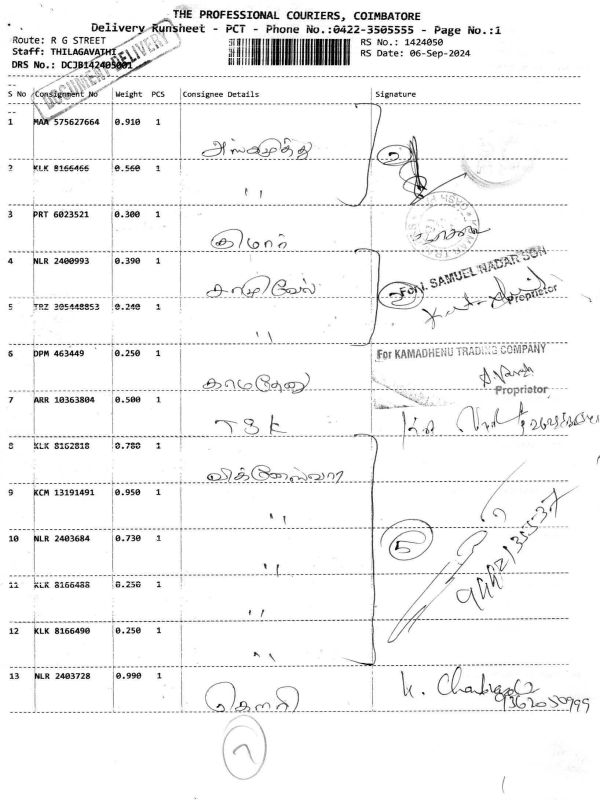 THE PROFESSIONAL COURIERS, COIMBATORE
Delivery Runsheet - PCT - Phone No.:0422-3505555 - Page No.:1
Route: R G STREET
RS No.: 1424050
Staff: THILAGAVATHI
RS Date: 06-Sep-2024
DRS No.: DCJB142405001
DOCUMENT DELIVERY
S No Consignment No Weight PCS Consignee Details Signature
1 MAA 575627664 0.910 1
2 KLK 8166466 0.560 1 " 
3 PRT 6023521 0.300 1 குமார்
4 NLR 2400993 0.390 1
For I. SAMUEL NADAR SON
Proprietor
5 TRZ 305448853 0.240 1 "
6 DPM 463449 0.250 1 காமதேனு
For KAMADHENU TRADING COMPANY
Proprietor
7 ARR 10363804 0.500 1 TSK
8 KLK 8162818 0.780 1 விக்னேஸ்வரா
9 KCM 13191491 0.950 1 "
10 NLR 2403684 0.730 1 "
5
11 KLK 8166488 0.250 1 "
12 KLK 8166490 0.250 1 "
13 NLR 2403728 0.990 1 கௌரி
7